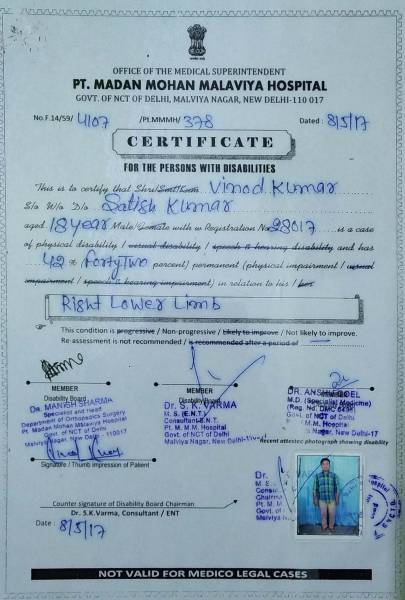 OFFICE OF THE MEDICAL SUPERINTENDENT
PT. MADAN MOHAN MALAVIYA HOSPITAL
GOVT. OF NCT OF DELHI, MALVIYA NAGAR, NEW DELHI-110 017
No.F.14/59/ 4107 /Pt.MMMH/ 378 Dated : 8/5/17
CERTIFICATE
FOR THE PERSONS WITH DISABILITIES
This is to certify that Shri/Smt/Kum Vinod Kumar
S/o W/o D/o Satish Kumar
aged 18 year Male/Female with us Registration No 28017 is a case
of physical disability / visual disability / speech & hearing disability and has
42 % Forty Two percent) permanent (physical impairment / visual
impairment / speech & hearing impairment) in relation to his / her
Right Lower Limb
This condition is progressive / Non-progressive / likely to improve / Not likely to improve.
Re assessment is not recommended / is recommended after a period of
MEMBER
Disability Board
DR. MANISH SHARMA
Specialist and Head
Department of Orthopaedics Surgery
Pt. Madan Mohan Malaviya Hospital
Govt. of NCT of Delhi
Malviya Nagar, New Delhi - 110017
Signature / Thumb Impression of Patient
MEMBER
Disability Board
Dr. S. K. VARMA
M. S. (E.N.T.)
Consultant-E.N.T.
Pt. M. M. M. Hospital
Govt. of N.C.T. of Delhi
Malviya Nagar, New Delhi-17
MEMBER
DR. ANSHU GOEL
M.D. (Specialist Medicine)
(Reg. No. DMC 6436)
M.M. Hospital
Nagar, New Delhi-17
Recent attested photograph showing disability
Dr.
M. S.
Consu
Pt. M. M
Govt. of
Malviya N
Counter signature of Disability Board Chairman
Dr. S.K.Varma, Consultant / ENT
Date : 8/5/17
NOT VALID FOR MEDICO LEGAL CASES